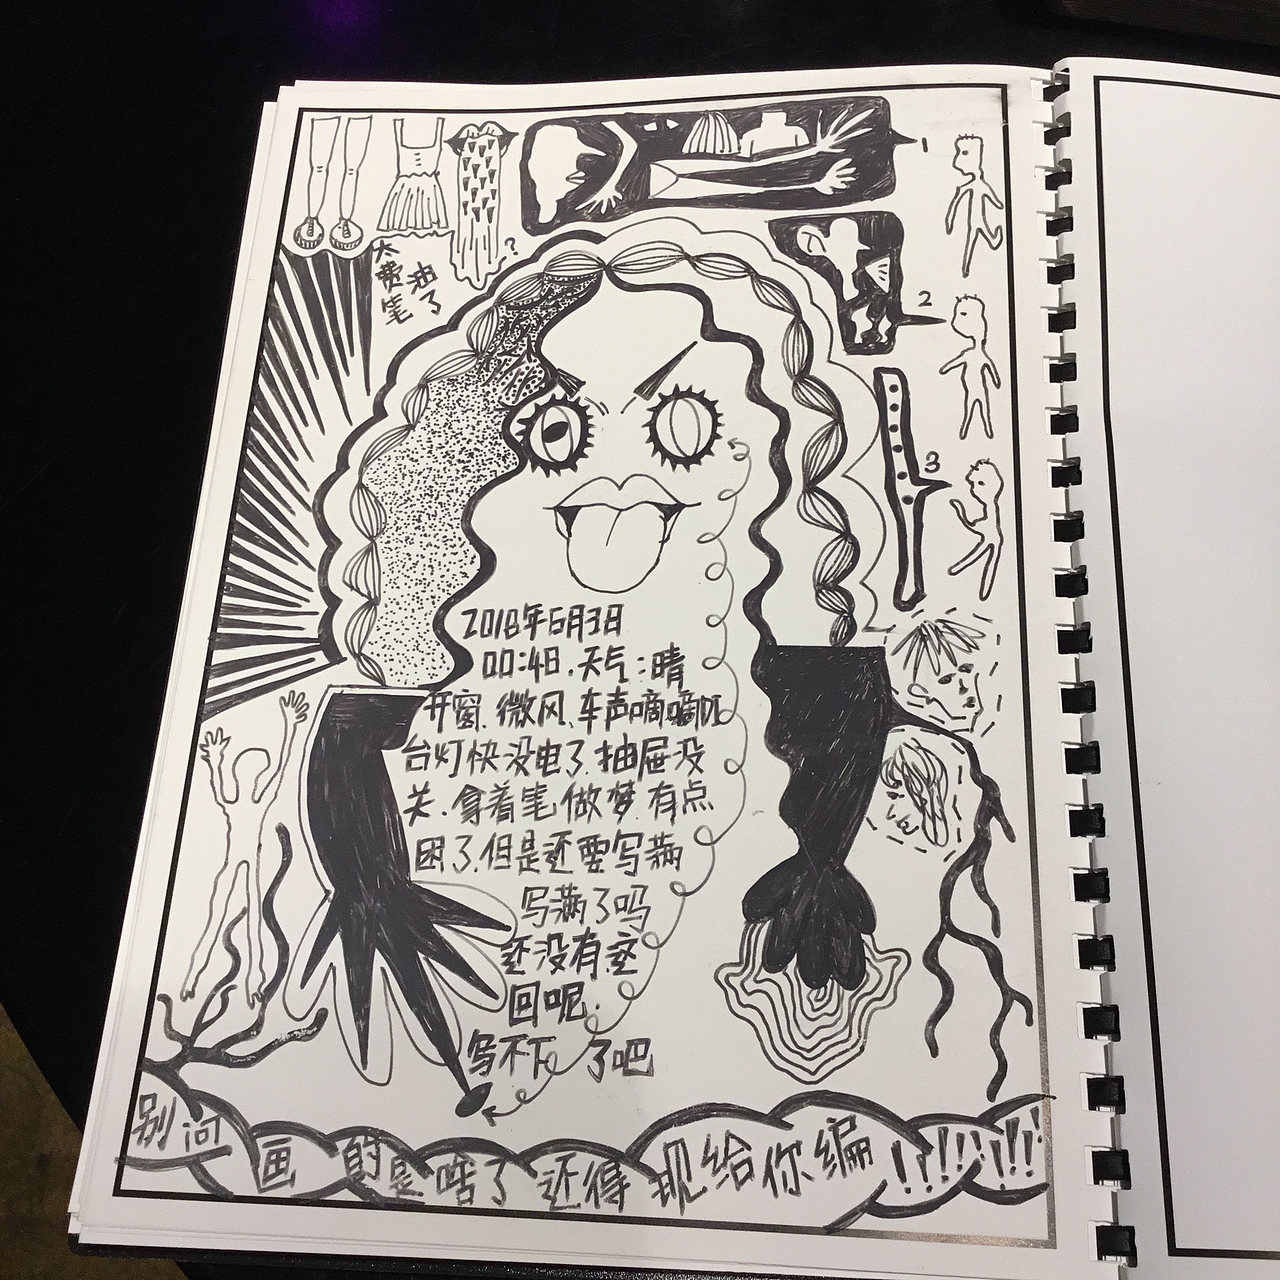 太费笔
油了
?
1
2
3
2018年6月3日
00:48.天气:晴
开窗.微风.车声嘀嘀叭
台灯快没电了.抽屉没
关.拿着笔做梦.有点
困了.但是还要写满
写满了吗
还没有.这
回呢.
写不下了吧
别问画的是啥了还得现给你编!!!!!!!